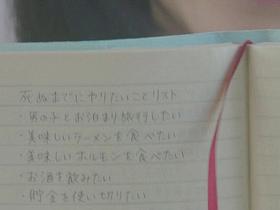 死ぬまでにやりたいことリスト
・男の子とお泊まり旅行したい
・美味しいラーメンを食べたい
・美味しいホルモンを食べたい
・お酒を飲みたい
・貯金を使い切りたい